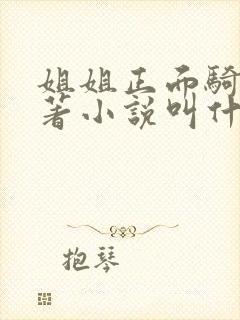 姐姐正面騎
著小說叫什
抱琴